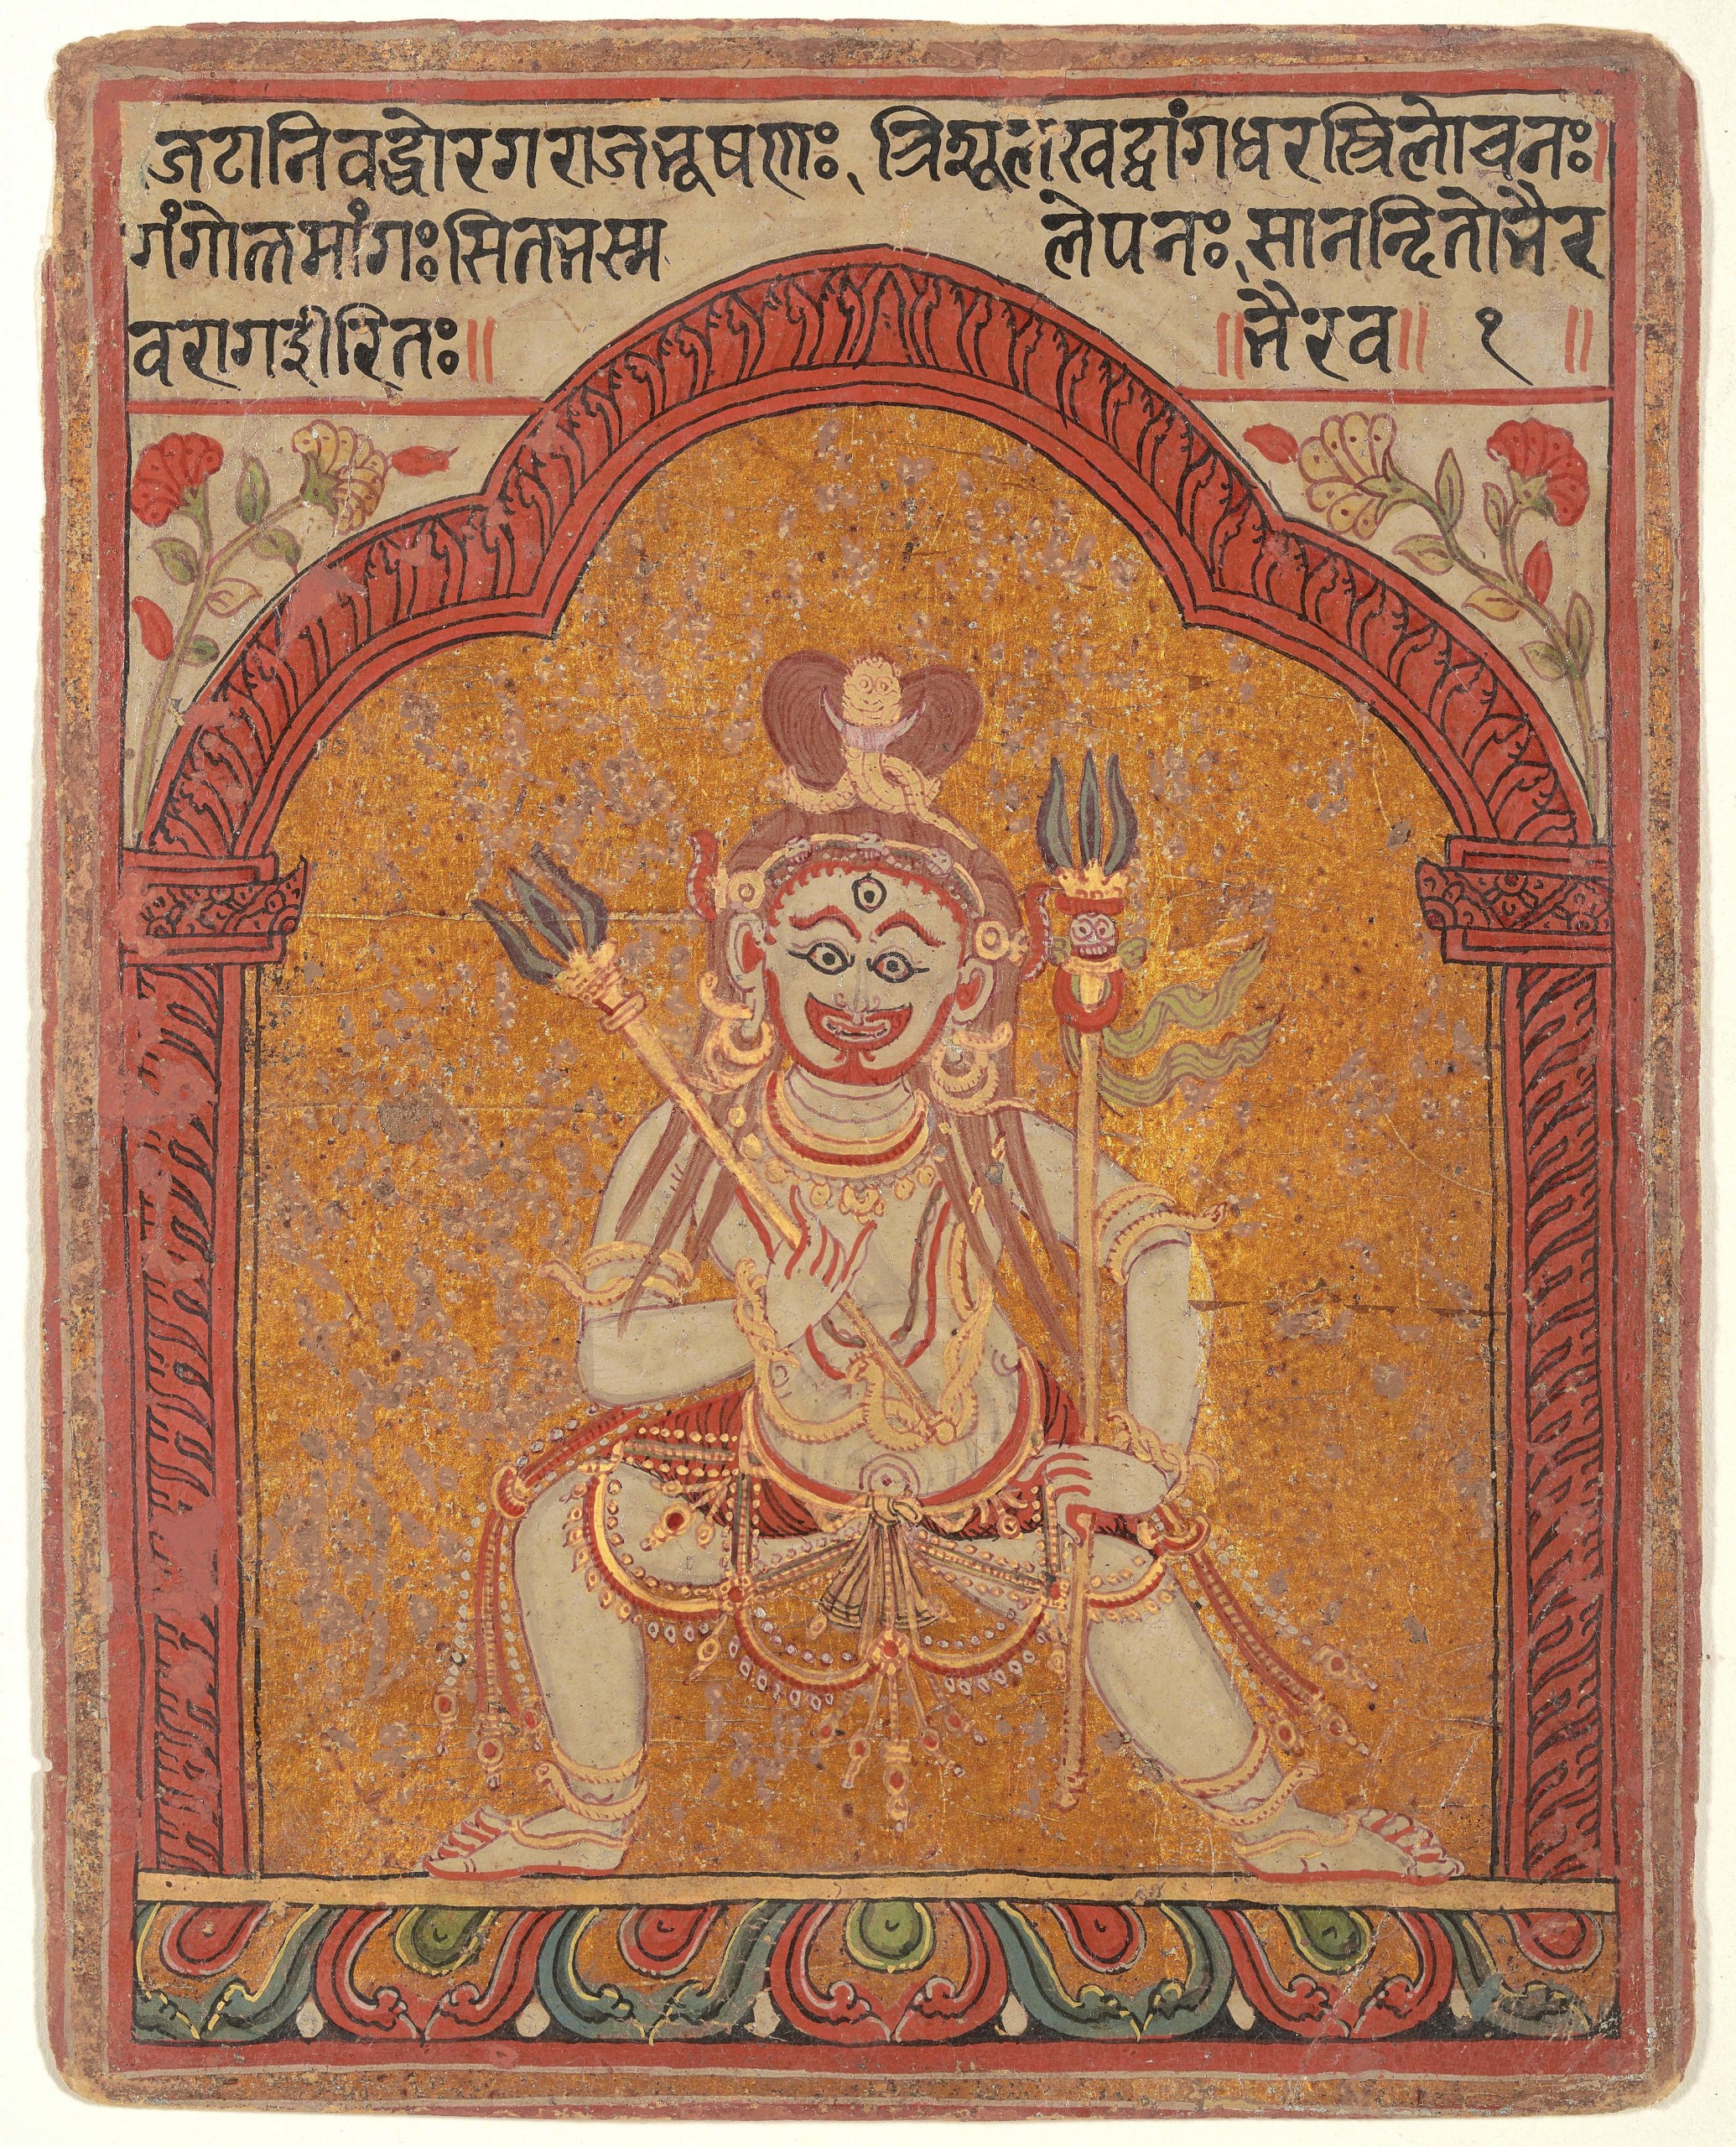 जटानिवद्धोरगराजभूषणः, त्रिशूलखट्वांगधरस्त्रिलोचनः।
गंगोत्तमांगः सितभस्म लेपनः, सानन्दितो भैर
वरागईरितः॥ ॥भैरव॥ १ ॥